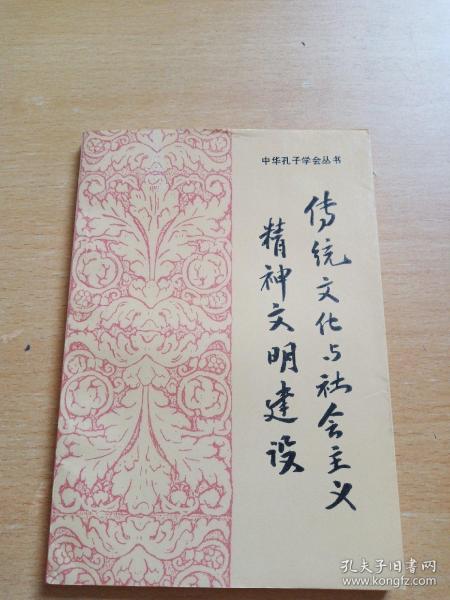 中华孔子学会丛书
传统文化与社会主义
精神文明建设
孔夫子旧书网
www.kongfz.com